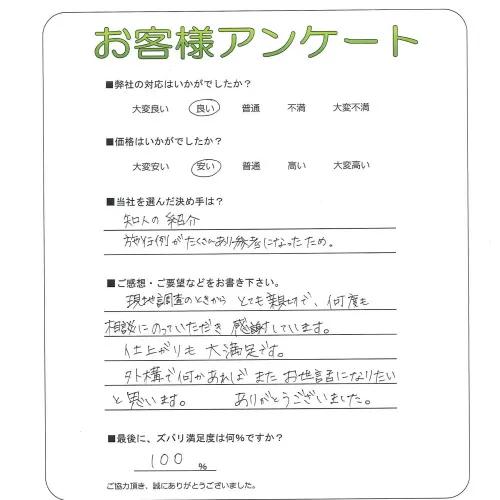 お客様アンケート
■弊社の対応はいかがでしたか？
大変良い 良い 普通 不満 大変不満
■価格はいかがでしたか？
大変安い 安い 普通 高い 大変高い
■当社を選んだ決め手は？
知人の紹介
施行例がたくさんあり参考になったため。
■ご感想・ご要望などをお書き下さい。
現地調査のときから とても親切で、何度も
相談にのっていただき 感謝しています。
仕上がりも 大満足です。
外構で何かあれば また お世話になりたい
と思います。 ありがとうございました。
■最後に、ズバリ満足度は何%ですか？
100 %
ご協力頂き、誠にありがとうございました。